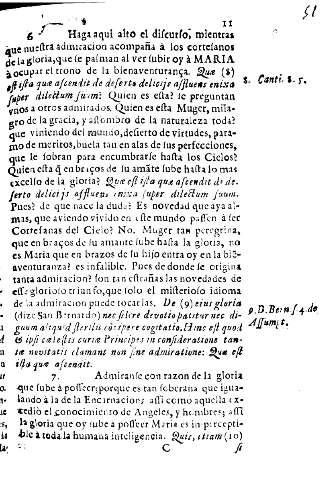 11
51
6 Haga aqui alto el discurso, mientras
que nuestra admiracion acompaña à los cortesanos
de la gloria, que se pasman al ver subir oy à MARIA
à ocupar el trono de la bienaventurança. Quæ (8)
est ista quæ ascendit de deserto delicijs affluens enixa
super dilectum suum? Quien es esta? se preguntan
vnos a otros admirados. Quien es esta Muger, mila-
gro de la gracia, y assombro de la naturaleza toda?
que viniendo del mundo, desierto de virtudes, para-
mo de meritos, buela tan en alas de sus perfecciones,
que le sobran para encumbrarse hasta los Cielos?
Quien esta q̃ en braços de su amãte sube hasta lo mas
excelso de la gloria? Quæ est ista quæ ascendit de de-
serto delicijs affluens enixa super dilectum suum.
Pues? de que nace la duda? Es novedad que aya al-
mas, que aviendo vivido en este mundo passen à ser
Cortesanas del Cielo? No. Muger tan peregrina,
que en braços de su amante sube hasta la gloria, no
es Maria que en brazos de su hijo entra oy en la biẽ-
aventuranza? es infalible. Pues de donde se origina
tanta admiracion? son tan estrañas las novedades de
esse glorioso triunfo, que solo el misterioso idioma
de la admiracion puede tocarlas. De (9) eius gloria
(dize San Bernardo)
tæ novitatis clamant non sine admiratione: Quæ est
ista quæ ascendit.
7. Admiranse con razon de la gloria
que sube à posseer; porque es tan soberana que igua-
lando à la de la Encarnacion; assi como aquella ex-
cediò el conocimiento de Angeles, y hombres; assi
la gloria que oy sube a posseer Maria es in percepti-
ble à toda la humana inteligencia. Quis, etiam (10)
C si
8. Canti. 8. 5.
9. D. Bern. s. 4. de
Assumt.